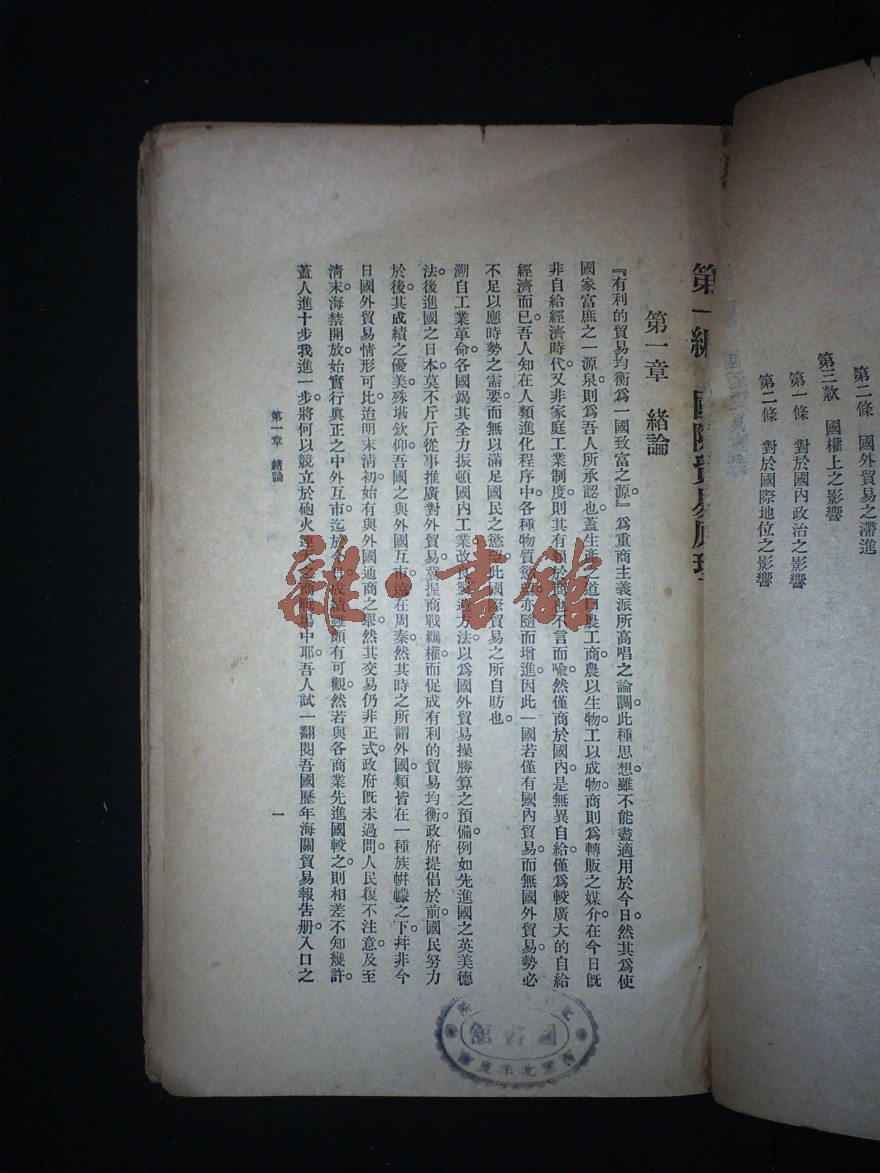 第二條　國外貿易之滯進
第三款　國權上之影響
第一條　對於國內政治之影響
第二條　對於國際地位之影響
第一編　國際貿易原理
第一章　緒論
『有利的貿易均衡爲一國致富之源』爲重商主義派所高唱之論調。此種思想雖不能盡適用於今日。然其爲使
國家富庶之一源泉。則爲吾人所承認也。蓋生產之道曰農工商。農以生物。工以成物。商則爲轉販之媒介。在今日旣
非自給經濟時代。又非家庭工業制度。則其有賴於商也。不言而喩。然僅商於國內。是無異自給。僅爲較廣大的自給
經濟而已。吾人知在人類進化程序中。各種物質慾望。亦隨而增進。因此一國若僅有國內貿易。而無國外貿易。勢必
不足以應時勢之需要。而無以滿足國民之慾望。此國際貿易之所自昉也。
溯自工業革命。各國竭其全力振頓國內工業。改良製造方法。以爲國外貿易操勝算之預備。例如先進國之英美德
法。後進國之日本。莫不斤斤從事推廣對外貿易。冀握商戰霸權。而促成有利的貿易均衡。政府提倡於前。國民努力
於後。其成績之優美。殊堪欽仰。吾國之與外國互市。遠在周秦。然其時之所謂外國。類皆在一種族帡幪之下。幷非今
日國外貿易情形可比。迨明末淸初。始有與外國通商之舉。然其交易仍非正式。政府旣未過問。人民復不注意。及至
淸末。海禁開放。始實行眞正之中外互市。迄於今日。成績雖頗有可觀。然若與各商業先進國較之。則相差不知幾許。
蓋人進十步。我進一步。將何以競立於砲火連天之商戰場中耶。吾人試一翻閱吾國歷年海關貿易報告册。入口之
第一章　緒論
一
雜·書館